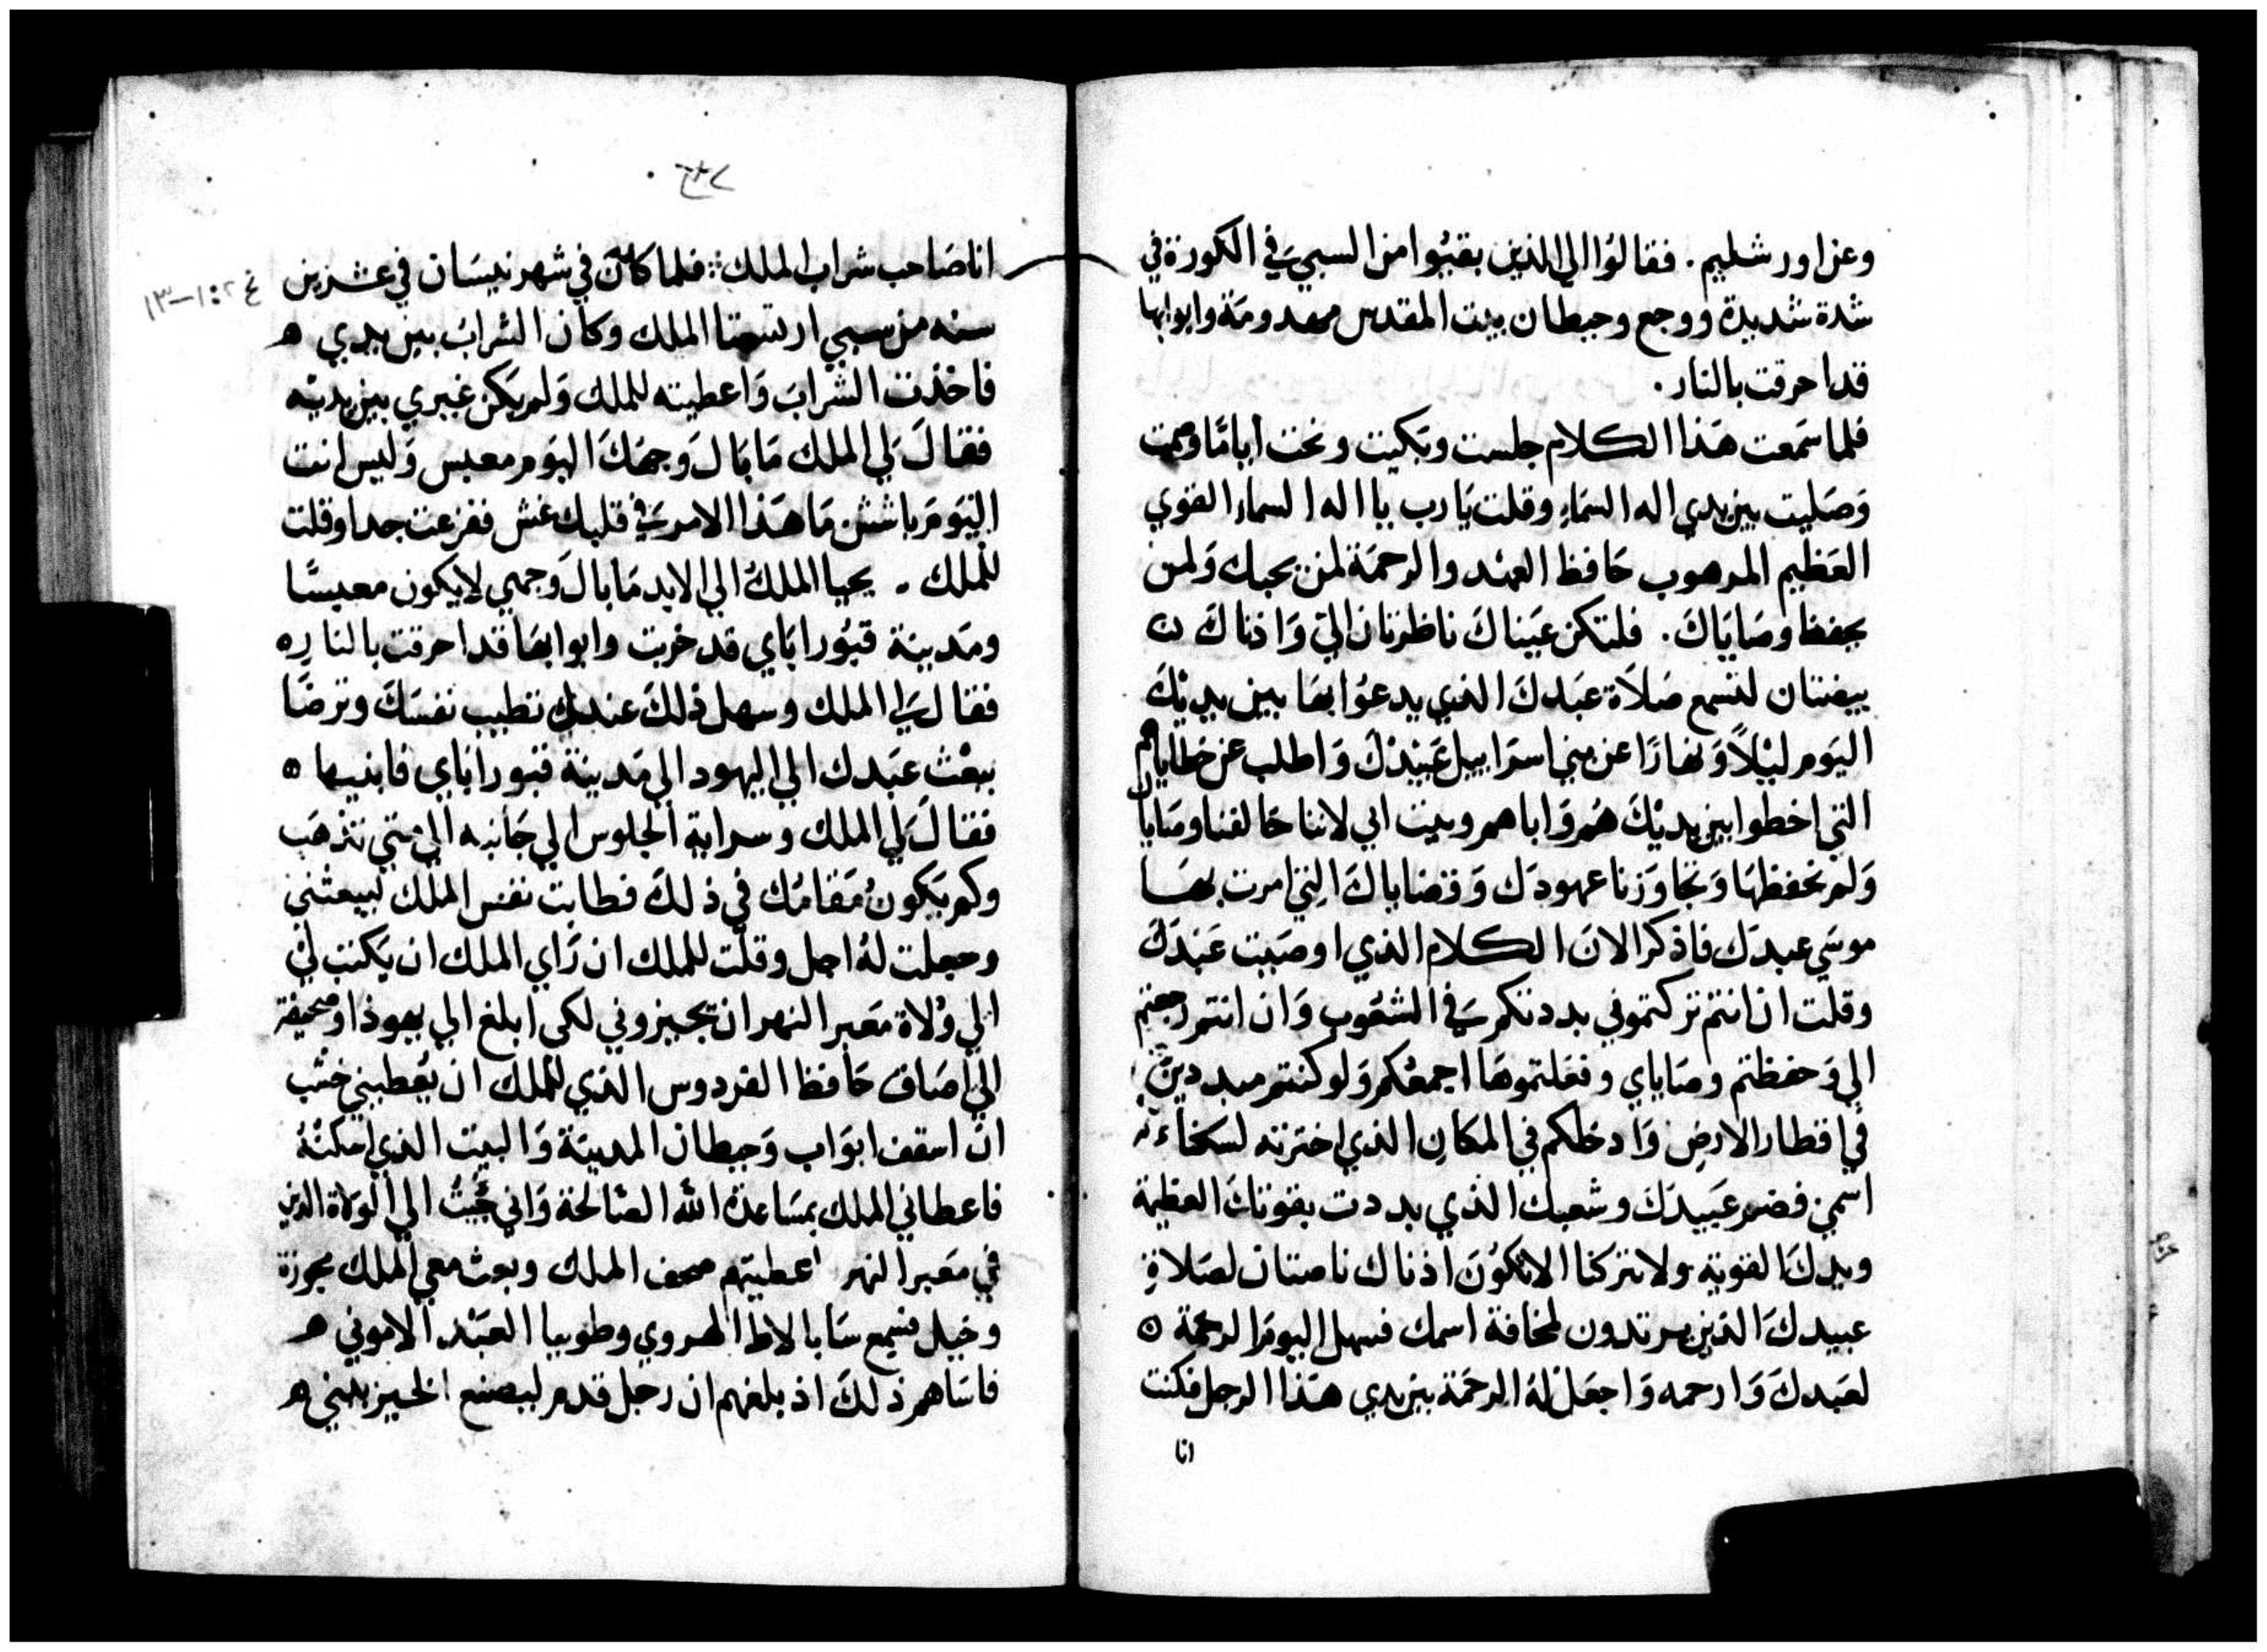 وعن اورشليم. فقالوُا الي الذين بقيُوا من السبي في الكورة في
شدة شديدة ووجع وحيطان بيت المقدس مهدومَة وابوابها
قد احرقت بالنار.
فلما سَمعت هَذا الكلام جلست وبَكيت ونحت أيامًا وصمت
وَصَليت بين يدي اله السَمَاءِ وقلت يَا رب يا اله السماء القوي
العَظيم المرهوب حَافظ العهْد والرحمَة لمن يحبك وَلمن
يحفظ وصَايَاكَ. فلتكن عَيناكَ ناظرتان اليّ وَاذناكَ ن
ييضتان لتسمع صَلاَة عبَدكَ الذي يدعُوا بهَا بين يديْكَ
اليَوم ليْلاً وَنهَارًا عن بني اسرَاييل عَبيْدكَ وَاطلب عن خطاياهم
التي اخطوا بين يديْكَ هُم وَاباهم وبيت ابي لاننا خَالفنا وصَاياك
وَلم نحفظهَا وَتجَاوَزنا عهودَك وَقضاياكَ التي امرت بهَا
موسَي عبدَك فاذكر الان الكلام الذي اوصَيت عَبْدَك
وقلت ان انتم تركتموني بددتكم في الشعُوب وَان انتم رجعتم
الي وَحفظتم وصَاياي وفعَلتموهَا اجمعُكم وَلو كنتم مبددين
في اقطار الارض وَادخلكم في المكان الذي اخترته لسكناه
اسمي فضم عَبيدَكَ وشعبك الذي بددت بقوتكَ العظيمة
ويدكَ القويَة ولا تتركنا الا تكوُنَ اذناك ناصتان لصَلاةِ
عبيدكَ الذين يرتدون لمخافة اسمك فسهل اليومَ الرحمَة ه
لعَبدكَ وَارحمه وَاجعَل لهُ الرحمَة بين يدي هَذا الرجل فكنت
انا
٢٣٧
انا صَاحب شراب الملك: فلما كان في شهر نيسَان في عشرين
غ ٢: ١-١٣
سنه من سبي ارتسحتا الملك وكان الشرابَ بين يدي ه
فاخذت الشَرابَ وَاعطيته للملك وَلم يَكن غيري بين يديْه
فقالَ لي الملك مَا بَالَ وَجهكَ اليَوم معبس وَليس انت
اليَومَ باشش مَا هَذا الامر في قلبك غش ففزعت جدا وقلت
للملك . يحيا الملكُ الي الابد مَا بالَ وَجهي لا يكون معبسًا
ومَدينة قبُور ابَاي قد خربت وابوابهَا قد احرقت بالنارِ ه
فقال لي الملك وسهل ذلكَ عندك تطيب نفسَكَ وترضَا
ببعْث عبَدك الي اليهود الي مَدينة قبور ابَاي فابنيها ه
فقالَ لي الملك وسراية الجلوس الي جَانبه الي متي تذهَب
وكم يَكونُ مَقامُك في ذلكَ فطابت نفس الملك ليبعثني
وجعلت لهُ اجل وقلت للملك ان رَاي الملك ان يَكتب لي
الي وُلاة مَعبر النهر ان تجيزوني لكي ابلغ الي يهوذا وصحيفة
الي اصَاف حَافظ الفردوس الذي للملك ان يُعطيني خشب
ان اسقف ابوَاب وَحيطان المدينَة وَالبيت الذي اسكنهُ
فاعطاني الملك بمسَاعدة الله الصَالحة وَاني جُيتُ الي الوَلاة الذين
في مَعبر النهر اعطيتهم صحف الملك وبعث معي الملك مجوزة
وخيل فسَمع سَابالاط الهروي وطوبيا العَبْد الاموني ه
فاسَاهم ذلكَ اذ بلغهم ان رجل قدم ليصنع الخير لبني ه